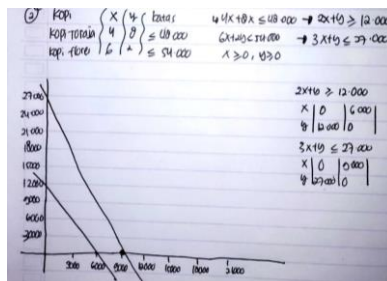 ② kopi x y batas
kopi toraja 4 8 ≤ 48 000
kopi flores 6 2 ≤ 54 000
4x+8x ≤ 48 000 → 2x+y ≥ 12.000
6x+2y ≤ 54 000 → 3x+y ≤ 27.000
x ≥ 0, y ≥ 0
2x+y ≥ 12.000
x 0 6 000
y 12 000 0
3x+y ≤ 27 000
x 0 9 000
y 27 000 0
27 000
24 000
21 000
18000
15 000
12 000
9000
6000
3000
3000 6000 9000